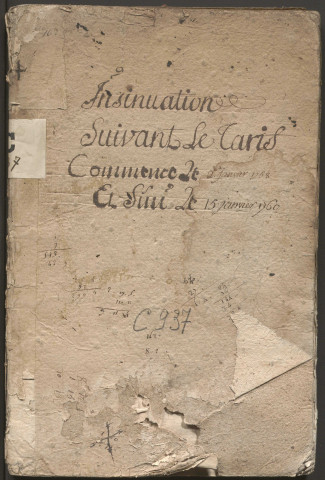 Insinuation
Suivant Le Tarif
Commencé Le janvier
Et fini Le 15 janvier 1760
C 937